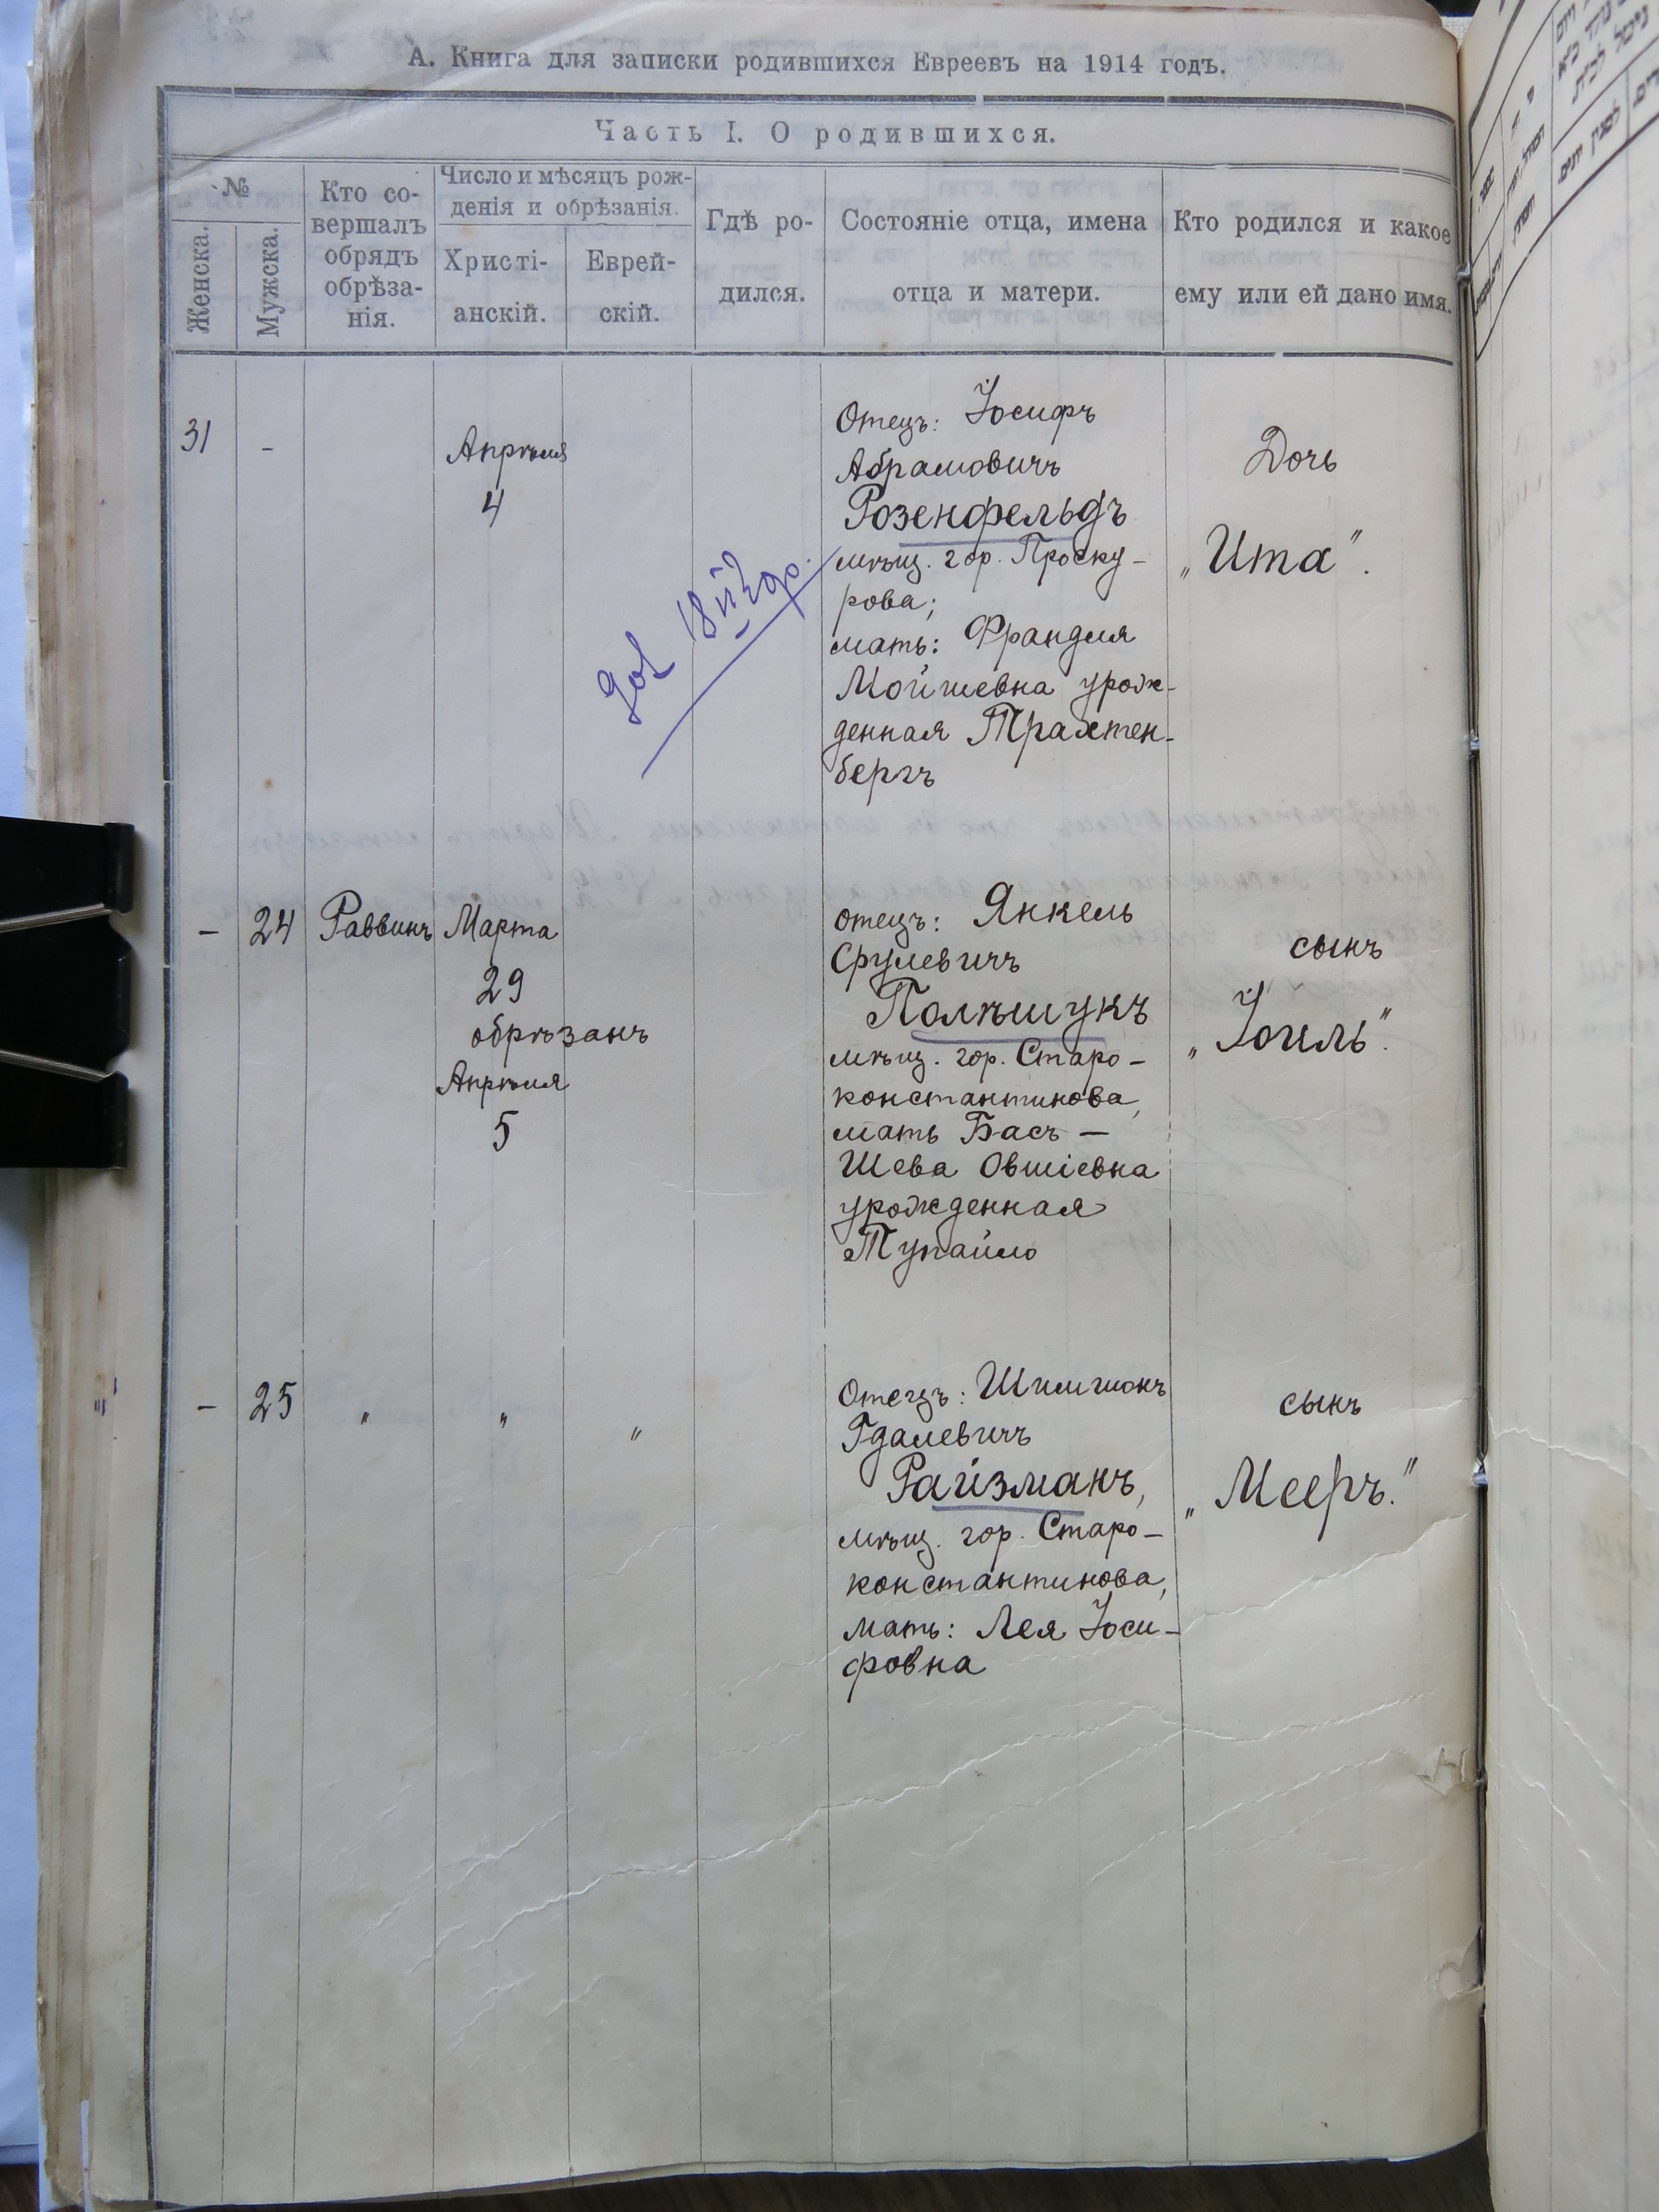 А. Книга для записки родившихся Евреевъ на 1914 годъ.
Часть I. О родившихся.
№
Женска.
Мужска.
Кто со-
вершалъ
обрядъ
обрѣза-
нія.
Число и мѣсяцъ рож-
денія и обрѣзанія.
Христі-
анскій.
Еврей-
скій.
Гдѣ ро-
дился.
Состояніе отца, имена
отца и матери.
Кто родился и какое
ему или ей дано имя.
31
-
Апрѣля
4
Отецъ: Іосифъ
Абрамовичъ
Розенфельдъ
мѣщ. гор. Проску-
рова;
мать: Франдля
Мойшевна урож-
денная Трахтен-
бергъ
Дочь
„Ита".
–
24
Раввинъ
Марта
29
обрѣзанъ
Апрѣля
5
отецъ: Янкель
Срулевичъ
Полѣшукъ
мѣщ. гор. Старо-
константинова,
мать Бась-
Шева Овшіевна
урожденная
Тупайло
сынъ
„Іоиль".
–
25
"
"
"
Отецъ: Шлимшонъ
Гдалевичъ
Райзманъ,
мѣщ. гор. Старо-
константинова,
мать: Лея Іоси-
фовна
сынъ
„Мееръ."